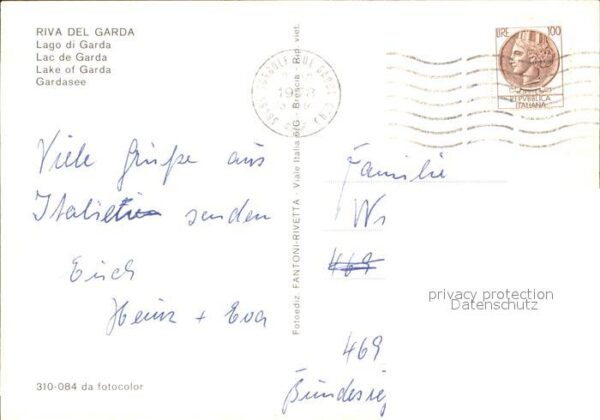 RIVA DEL GARDA
Lago di Garda
Lac de Garda
Lake of Garda
Gardasee
Viele Grüße aus
Italien senden
Euch
Heinz + Eva
310-084 da fotocolor
Fotoediz. FANTONI-RIVETTA Viale Italia 6/G - Brescia Rip. viet.
LIRE 100
REPVBBLICA
ITALIANA
Familie
469
privacy protection
Datenschutz
469